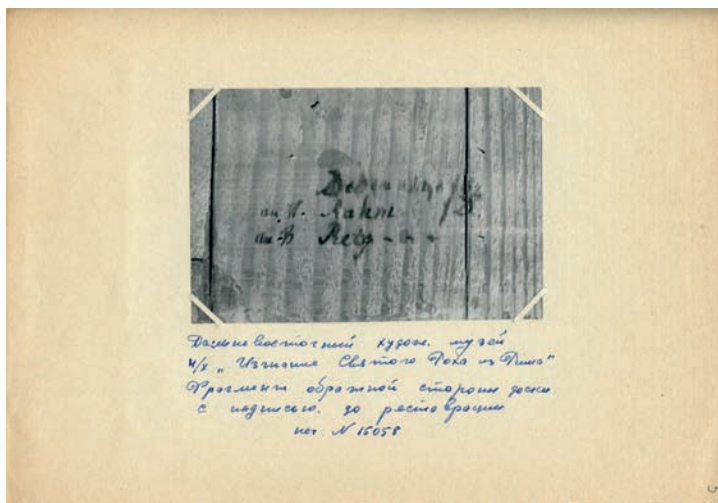 an W. Rahm /D.
an B Retg - - -
Дальневосточный худож. музей
н/х „Изгнание Святого Роха из Рима“
Фрагмент обратной стороны доски
с надписью. до реставрации
нег. N 15058